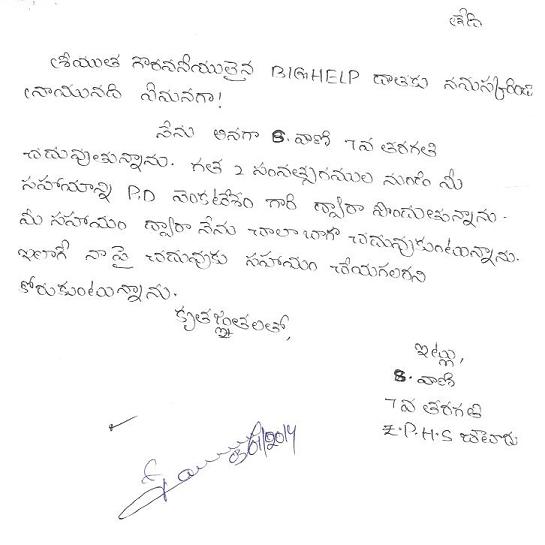 తేది
శ్రీయుత గౌరవనీయులైన BIGHELP దాతకు నమస్కరించి
వ్రాయునది ఏమనగా!
నేను అనగా S. వాణి 7వ తరగతి
చదువుతున్నాను. గత 2 సంవత్సరముల నుండి మీ
సహాయాన్ని P.D వెంకటేశం గారి ద్వారా పొందుతున్నాను.
మీ సహాయం ద్వారా నేను చాలా బాగా చదువుకుంటున్నాను.
ఇలాగే నా పై చదువుకు సహాయం చేయగలరని
కోరుకుంటున్నాను.
కృతజ్ఞతలతో,
ఇట్లు,
S. వాణి
7వ తరగతి
Z.P.H.S